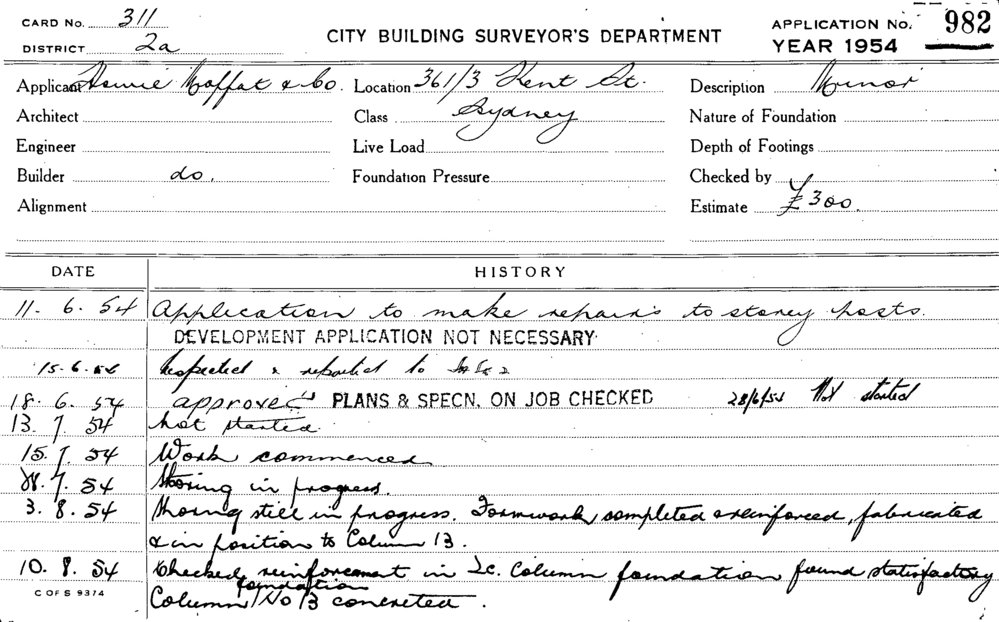 CARD No. 311
DISTRICT 2a
CITY BUILDING SURVEYOR'S DEPARTMENT
APPLICATION No. 982
YEAR 1954
Applicant Howie Moffat & Co. Location 361/3 Kent St. Description Minor
Architect Class Sydney Nature of Foundation
Engineer Live Load Depth of Footings
Builder do. Foundation Pressure Checked by
Alignment Estimate £300.
DATE HISTORY
11. 6. 54 Application to make repairs to storey posts.
DEVELOPMENT APPLICATION NOT NECESSARY
15.6.54 Inspected & reported to
18. 6. 54 approved PLANS & SPECN. ON JOB CHECKED 28/6/54 Not started
13. 7. 54 Not started.
15. 7. 54 Work commenced
28. 7. 54 Shoring in progress.
3. 8. 54 Shoring still in progress. Formwork completed & reinforced, fabricated
& in position to Column 13.
10. 8. 54 Checked reinforcement in Column foundation found statisfactory
Column foundation No 13 concreted.
C OF S 9374